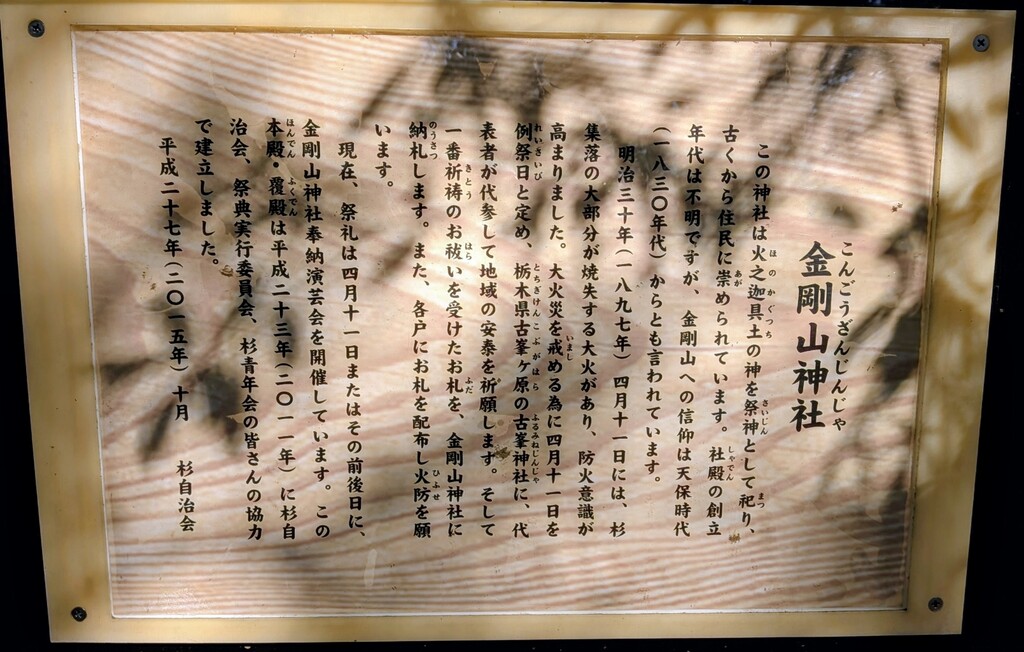 金剛山神社
こんごうざんじんじゃ
この神社は火之迦具土の神を祭神として祀り、
ほのかぐつち
さいじん
まつ
古くから住民に崇められています。社殿の創立
あが
しゃでん
年代は不明ですが、金剛山への信仰は天保時代
(一八三〇年代)からとも言われています。
明治三十年(一八九七年)四月十一日には、杉
集落の大部分が焼失する大火があり、防火意識が
高まりました。大火災を戒める為に四月十一日を
いまし
例祭日と定め、栃木県古峯ヶ原の古峯神社に、代
れいさいび
とちぎけんこぶがはら
ふるみねじんじゃ
表者が代参して地域の安泰を祈願します。そして
一番祈祷のお祓いを受けたお札を、金剛山神社に
きとう
はら
ふだ
納札します。また、各戸にお札を配布し火防を願
のうさつ
ひふせ
います。
現在、祭礼は四月十一日またはその前後日に、
金剛山神社奉納演芸会を開催しています。この
本殿・覆殿は平成二十三年(二〇一一年)に杉自
ほんでん
ふくでん
治会、祭典実行委員会、杉青年会の皆さんの協力
で建立しました。
平成二十七年(二〇一五年)十月
杉自治会